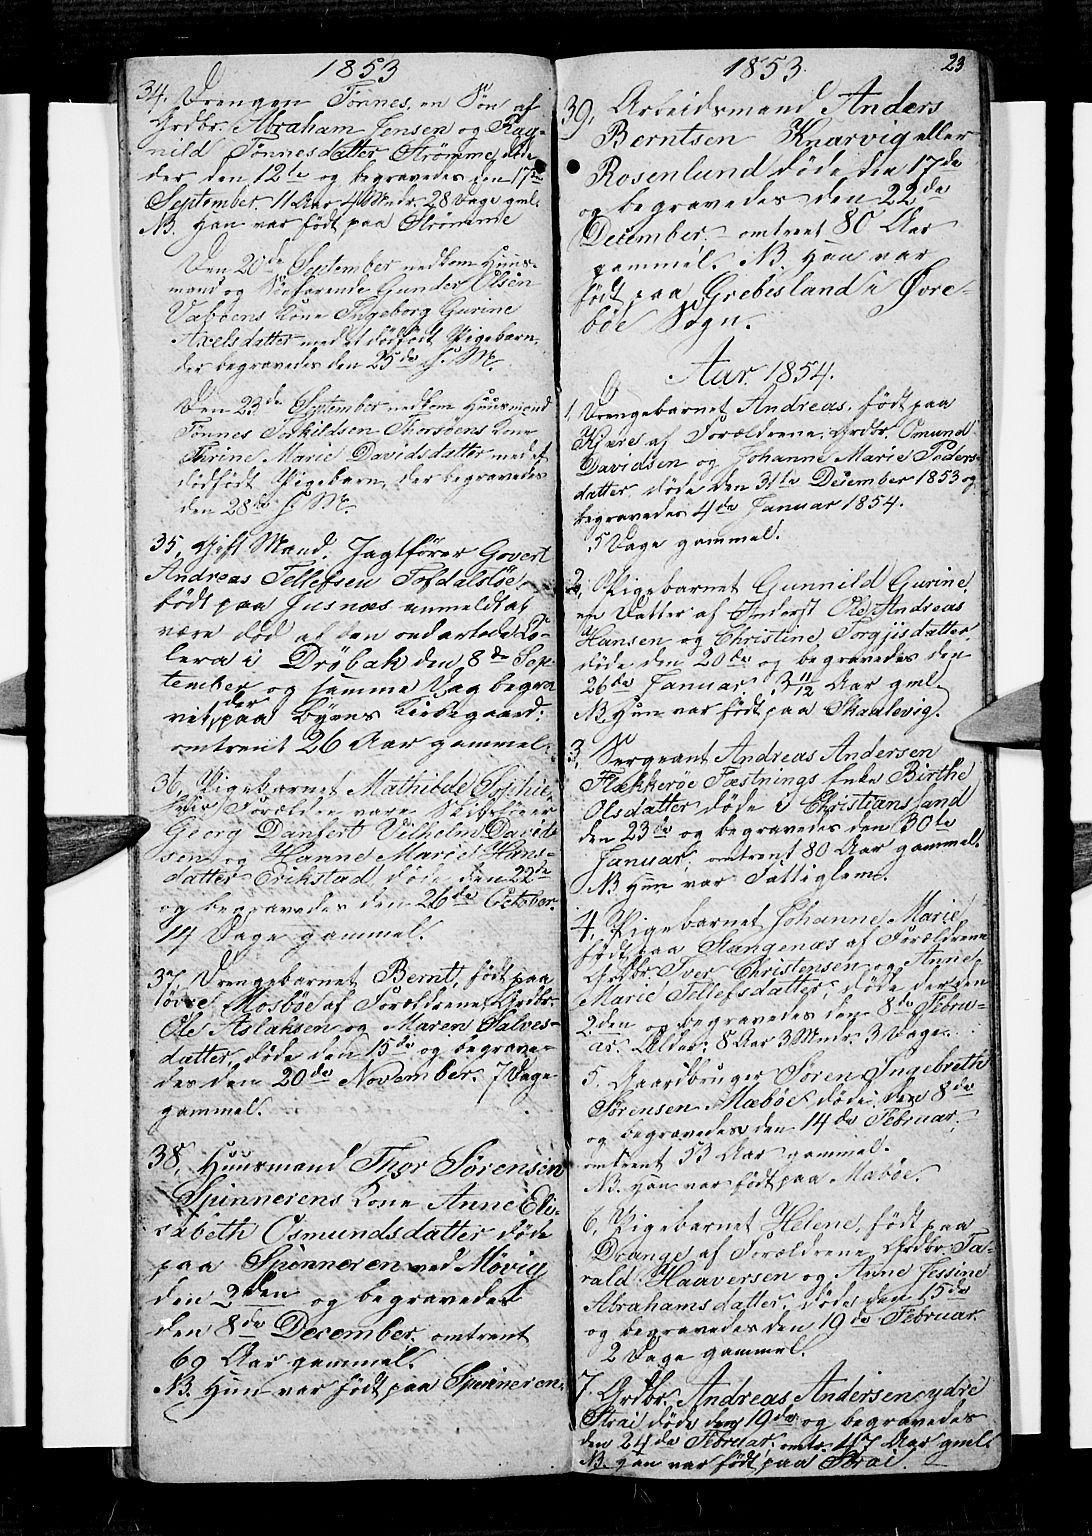 1853
34. Drengen Tönnes, en Søn af
Grdbr. Abraham Jensen og Rag-
nild Tönnesdatter Strømme, dö-
der den 12te og begravedes den 17de
September 11 Aar 4 Mdr. 28 Dage gml.
NB. Han var født paa Strømme
Den 20de September nedkom Huus-
mand og Söefarende Gunder Olsen
Vaböens Kone Ingeborg Gurine
Axelsdatter med et dödfödt Pigebarn,
der begravedes den 25de s. M.
Den 23de September nedkom Huusmand
Tönnes Terkildsen Storsöens Kone
Thrine Marie Davidsdatter med et
dödfödt Pigebarn, der begravedes
den 28de s. M.
35. Gift Mand. Jagtfører Govert
Andreas Tellefsen Tofdalsöe,
født paa Jusnæs anmeldt at
være död af den ondartede Co-
lera i Dröbak den 8de Sep-
tember og samme Dag begra-
vet der paa Byens Kirkegaard:
omtrent 26 Aar gammel.
36, Pigebarnet Mathilde Sophie,
hvis Forældre vare Skibsförer
Georg Danfert Vilhelm David-
sen og Hanne Marie Hans-
datter Erikstad, döde den 22de
og begravedes den 26de October.
14 Dage gammel.
37, Drengebarnet Bernt, født paa
Mosböe af Forældrene, Grdbr.
Ole Aslaksen og Maren Salves-
datter, döde den 15de og begrave-
des den 20de November. 7 Dage
gammel.
38, Huusmand Thor Sörensen
Spinnerens Kone Anne Eli-
sabeth Osmundsdatter döde
paa Spinneren ved Møvig
den 2den og begravedes
den 8de December, omtrent
69 Aar gammel.
NB. Hun var födt paa Spinneren.
1853.
23
39, Arbeidsmand Anders
Berntsen Knarvig eller
Rosenlund döde den 17de
og begravedes den 22de
December, omtrent 80 Aar
gammel. NB. Han var
födt paa Grebisland i Øvre-
böe Sogn.
Aar 1854.
1, Drengebarnet Andreas, födt paa
Kjære af Forældrene, Grdbr. Omund
Davidsen og Johanne Marie Peders-
datter, döde den 31te December 1853 og
begravedes 4de Januar 1854.
5 Dage gammel.
2, Pigebarnet Gunnild Gurine,
en Datter af Inderst Ole Andreas
Hansen og Christine Torgjisdatter,
döde den 20de og begravedes den
26de Januar. 3 11/12 Aar gml.
NB. Hun var födt paa Skaalevig.
3, Sergeant Andreas Andersen
Flekkeröe Fæstnings Enke Birthe
Olsdatter döde i Christianssand
den 23de og begravedes den 30te
Januar, omtrent 80 Aar gammel.
NB. Hun var Fattiglem.
4, Pigebarnet Johanne Marie,
födt paa Stangenæs af Forældrene
Grdbr. Iver Christensen og Anne
Marie Tellefsdatter, döde der den
2den og begravedes den 8de Febru-
ar. Alder: 8 Aar 3 Mdr. 3 Dage.
5. Gaardbruger Sören Ingebreth
Sörensen Mæböe, döde den 8de
og begravedes den 14de Februar,
omtrent 53 Aar gammel.
NB. Han var födt paa Mæböe.
6, Pigebarnet Helene, födt paa
Drange af Forældrene Grdbr. Ta-
rald Haaversen og Anne Jessine
Abrahamsdatter, döde den 15de
og begravedes den 19de Februar.
2 Dage gammel.
7. Grdbr. Andreas Andersen ydre
Strai döde den 19de og begravedes
den 24de Februar, omtr. 47 Aar gml.
NB. Han var födt paa Strai.